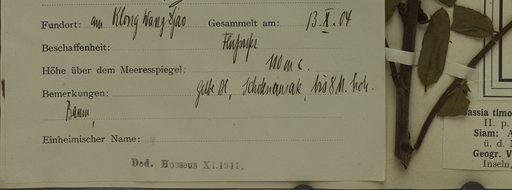 Fundort: am Klong Wang Djao Gesammelt am: 13.X.04
Beschaffenheit:
Höhe über dem Meeresspiegel: 110 m c.
Bemerkungen: gelbe Bl., bis 8 M. hoch.
Baum,
Einheimischer Name:
Ded. Hosseus XI.1911.
assia timo
II. p.
Siam: A
ü. d. M
Geogr. V
Inseln,